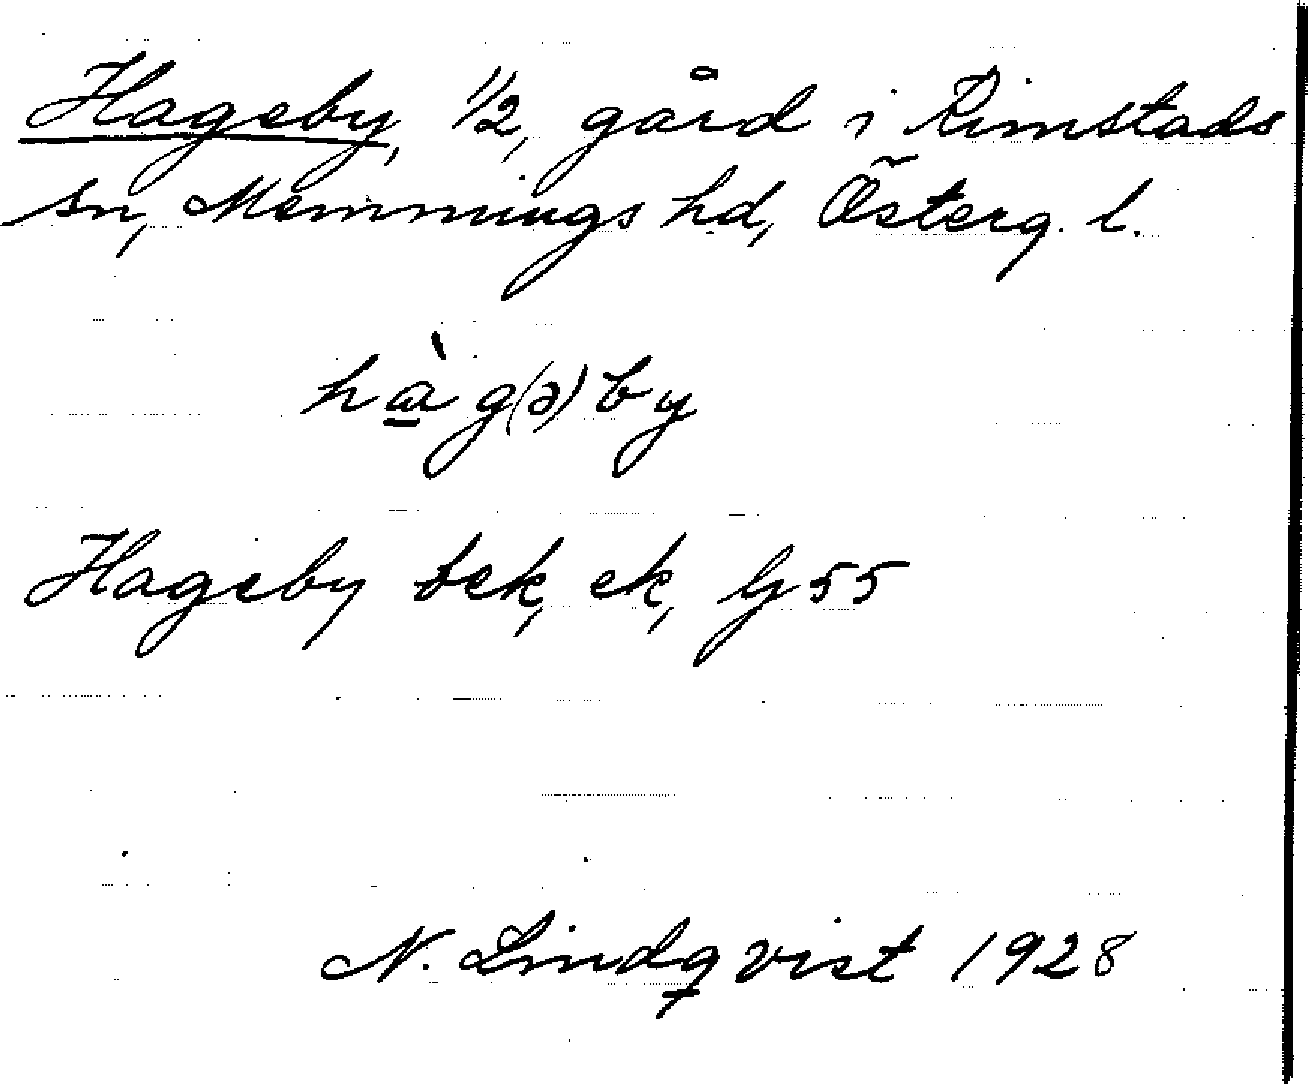 Hageby, 1/2, gård i Rimstads
sn, Memmings hd, Österg. l.
hàg(ə)by
Hageby bek, ek, Gs 55
N. Lindqvist 1928